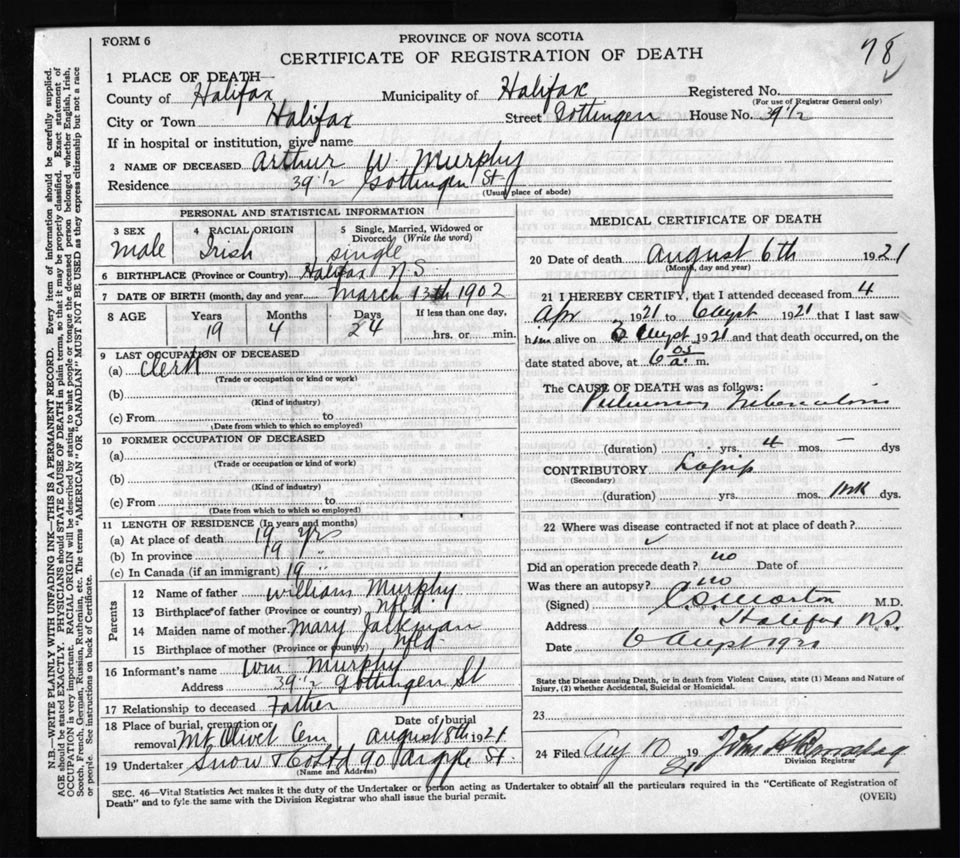 FORM 6
PROVINCE OF NOVA SCOTIA
CERTIFICATE OF REGISTRATION OF DEATH
78
1 PLACE OF DEATH
County of Halifax Municipality of Halifax Registered No.
(For use of Registrar General only)
City or Town Halifax Street Gottingen House No. 39 1/2
If in hospital or institution, give name
2 NAME OF DECEASED Arthur W. Murphy
Residence 39 1/2 Gottingen St
(Usual place of abode)
PERSONAL AND STATISTICAL INFORMATION
3 SEX 4 RACIAL ORIGIN 5 Single, Married, Widowed or Divorced (Write the word)
Male Irish single
6 BIRTHPLACE (Province or Country) Halifax N.S.
7 DATE OF BIRTH (month, day and year) March 13th 1902
8 AGE Years Months Days If less than one day,
19 4 24 hrs. or min.
9 LAST OCCUPATION OF DECEASED
(a) Clerk
(Trade or occupation or kind or work)
(b)
(Kind of industry)
(c) From to
(Date from which to which so employed)
10 FORMER OCCUPATION OF DECEASED
(a)
(Trade or occupation or kind of work)
(b)
(Kind of industry)
(c) From to
(Date from which to which so employed)
11 LENGTH OF RESIDENCE (In years and months)
(a) At place of death 19 yrs
(b) In province 19 "
(c) In Canada (if an immigrant) 19 "
Parents
12 Name of father William Murphy
13 Birthplace of father (Province or country) Nfld.
14 Maiden name of mother Mary Jackman
15 Birthplace of mother (Province or country) Nfld
16 Informant's name Wm Murphy
Address 39 1/2 Gottingen St
17 Relationship to deceased Father
18 Place of burial, cremation or removal Mt Olivet Cem Date of burial August 8th 1921
19 Undertaker Snow & Co Ltd 90 Argyle St.
(Name and Address)
MEDICAL CERTIFICATE OF DEATH
20 Date of death August 6th 1921
(Month, day and year)
21 I HEREBY CERTIFY, that I attended deceased from 4
Apr 1921 to 6 Augst 1921 that I last saw
him alive on 3 Augst 1921 and that death occurred, on the
date stated above, at 6 a. m.
The CAUSE OF DEATH was as follows:
Pulmonary Tuberculosis
(duration) yrs. 4 mos. – dys
CONTRIBUTORY
(Secondary)
(duration) yrs. mos. dys.
22 Where was disease contracted if not at place of death?
Did an operation precede death? no Date of
Was there an autopsy? no
(Signed) M.D.
Address Halifax N.S.
Date 6 Augst 1921
State the Disease causing Death, or in death from Violent Causes, state (1) Means and Nature of Injury, (2) whether Accidental, Suicidal or Homicidal.
23
24 Filed Aug 10 1921 John
Division Registrar
SEC. 46—Vital Statistics Act makes it the duty of the Undertaker or person acting as Undertaker to obtain all the particulars required in the "Certificate of Registration of
Death" and to fyle the same with the Division Registrar who shall issue the burial permit.
(OVER)
N.B.—WRITE PLAINLY WITH UNFADING INK—THIS IS A PERMANENT RECORD. Every item of information should be carefully supplied.
AGE should be stated EXACTLY. PHYSICIANS should STATE CAUSE OF DEATH in plain terms, so that it may be properly classified. Exact statement of
OCCUPATION is very important. RACIAL ORIGIN will be described by stating to what people or tongue the deceased person belonged whether English, Irish,
Scotch, French, German, Russian, Ruthenian, etc. The terms "AMERICAN" OR "CANADIAN" MUST NOT BE USED as they express citizenship but not a race
or people. See instructions on back of Certificate.